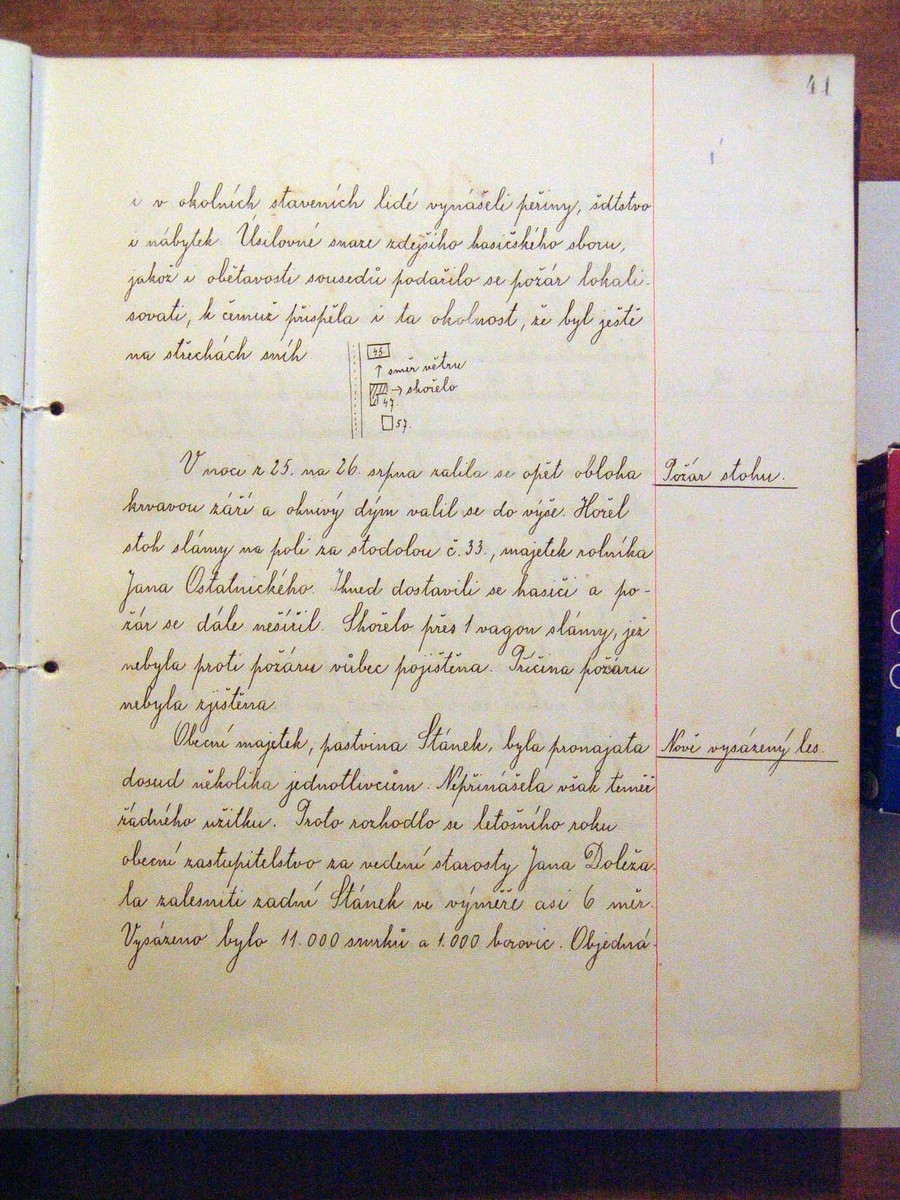 41
i v okolních staveních lidé vynášeli peřiny, šatstvo
i nábytek. Úsilovné snaze zdejšího hasičského sboru,
jakož i obětavosti sousedů podařilo se požár lokali-
sovati, k čemuž přispěla i ta okolnost, že byl ještě
na střechách sníh
45
↑ směr větru
→ shořelo
47.
57.
V noci z 25. na 26. srpna zalila se opět obloha
Požár stohu.
krvavou září a ohnivý dým valil se do výše. Hořel
stoh slámy na poli za stodolou č. 33., majetek rolníka
Jana Ostatnického. Ihned dostavili se hasiči a po-
žár se dále nešířil. Shořelo přes 1 vagon slámy, jež
nebyla proti požáru vůbec pojištěna. Příčina požáru
nebyla zjištěna.
Obecní majetek, pastvina Stánek, byla pronajata
Nově vysázený les.
dosud několika jednotlivcům. Nepřinášela však téměř
řádného užitku. Proto rozhodlo se letošního roku
obecní zastupitelstvo za vedení starosty Jana Doleža-
la zalesniti zadní Stánek ve výměře asi 6 měr.
Vysázeno bylo 11.000 smrků a 1.000 borovic. Objedná-